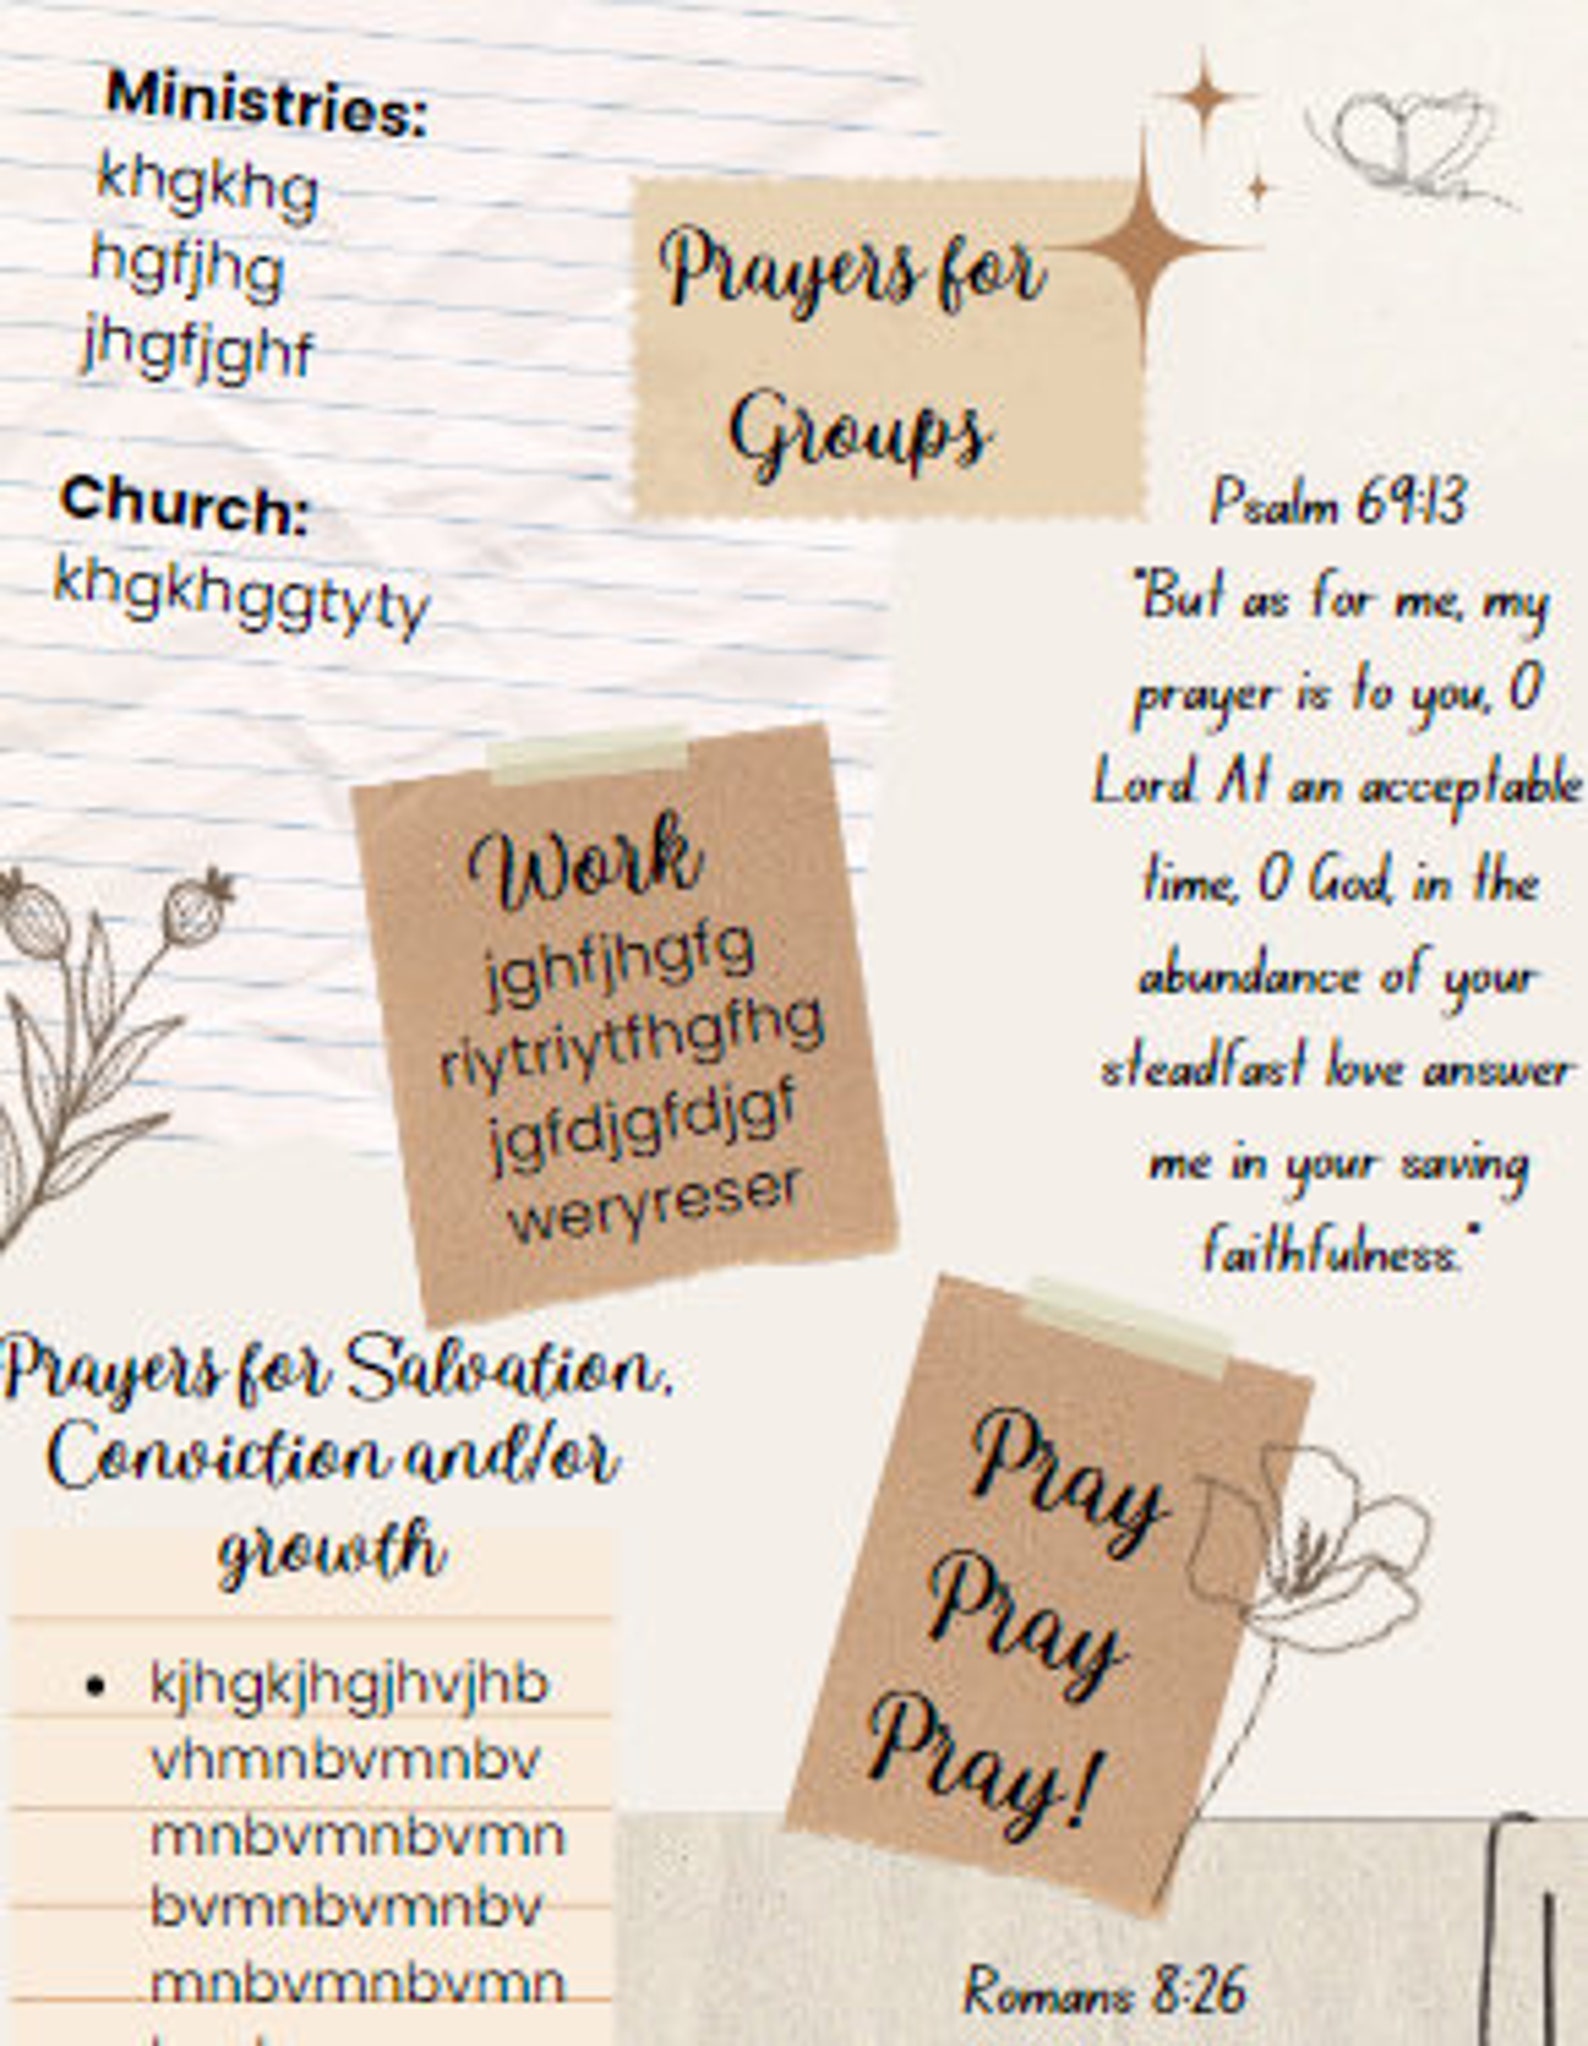 Ministries:
khgkhg
hgfjhg
jhgfjghf
Church:
khgkhggtyty
Prayers for
Groups
Psalm 69:13
"But as for me, my
prayer is to you, O
Lord. At an acceptable
time, O God, in the
abundance of your
steadfast love answer
me in your saving
faithfulness."
Work
jghfjhgfg
riytriytfhgfhg
jgfdjgfdjgf
weryreser
Prayers for Salvation,
Conviction and/or
growth
• kjhgkjhgjhvjhb
vhmnbvmnbv
mnbvmnbvmn
bvmnbvmnbv
mnbvmnbvmn
Pray
Pray
Pray!
Romans 8:26